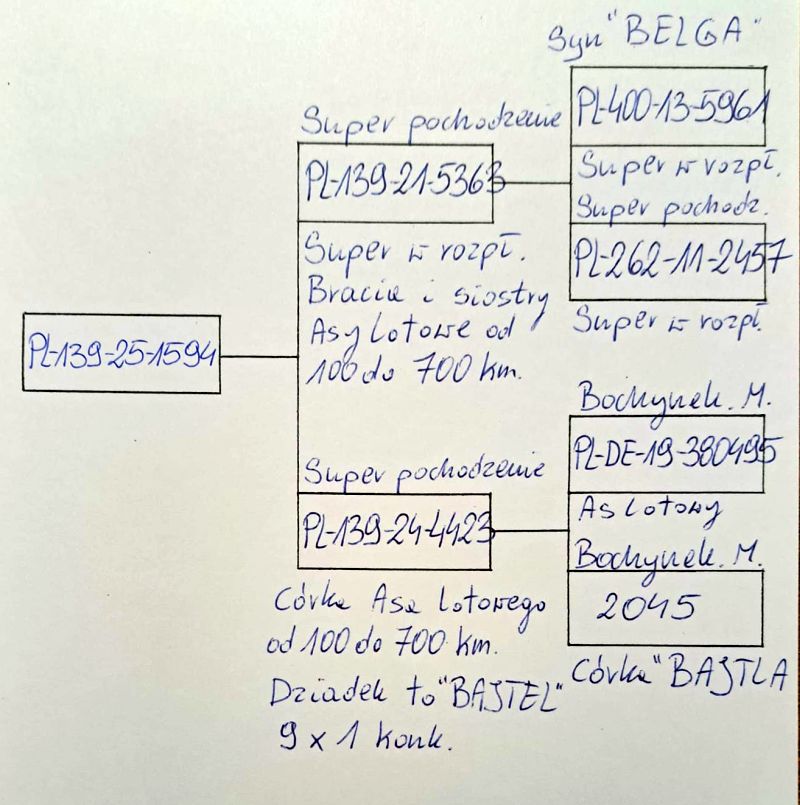 Syn "BELGA"
PL-400-13-5961
Super w rozpł.
Super pochodzenie
PL-139-21-5363
Super pochodz.
PL-262-11-2457
Super w rozpł.
Super w rozpł.
Bracia i siostry
Asy lotowe od
100 do 700 km.
PL-139-25-1594
Bochynek. M.
PL-DE-19-380495
As lotowy
Super pochodzenie
PL-139-24-4423
Bochynek. M.
2045
Córka "BAJTLA
Córka Asa lotowego
od 100 do 700 km.
Dziadek to "BAJTEL"
9 x 1 konk.